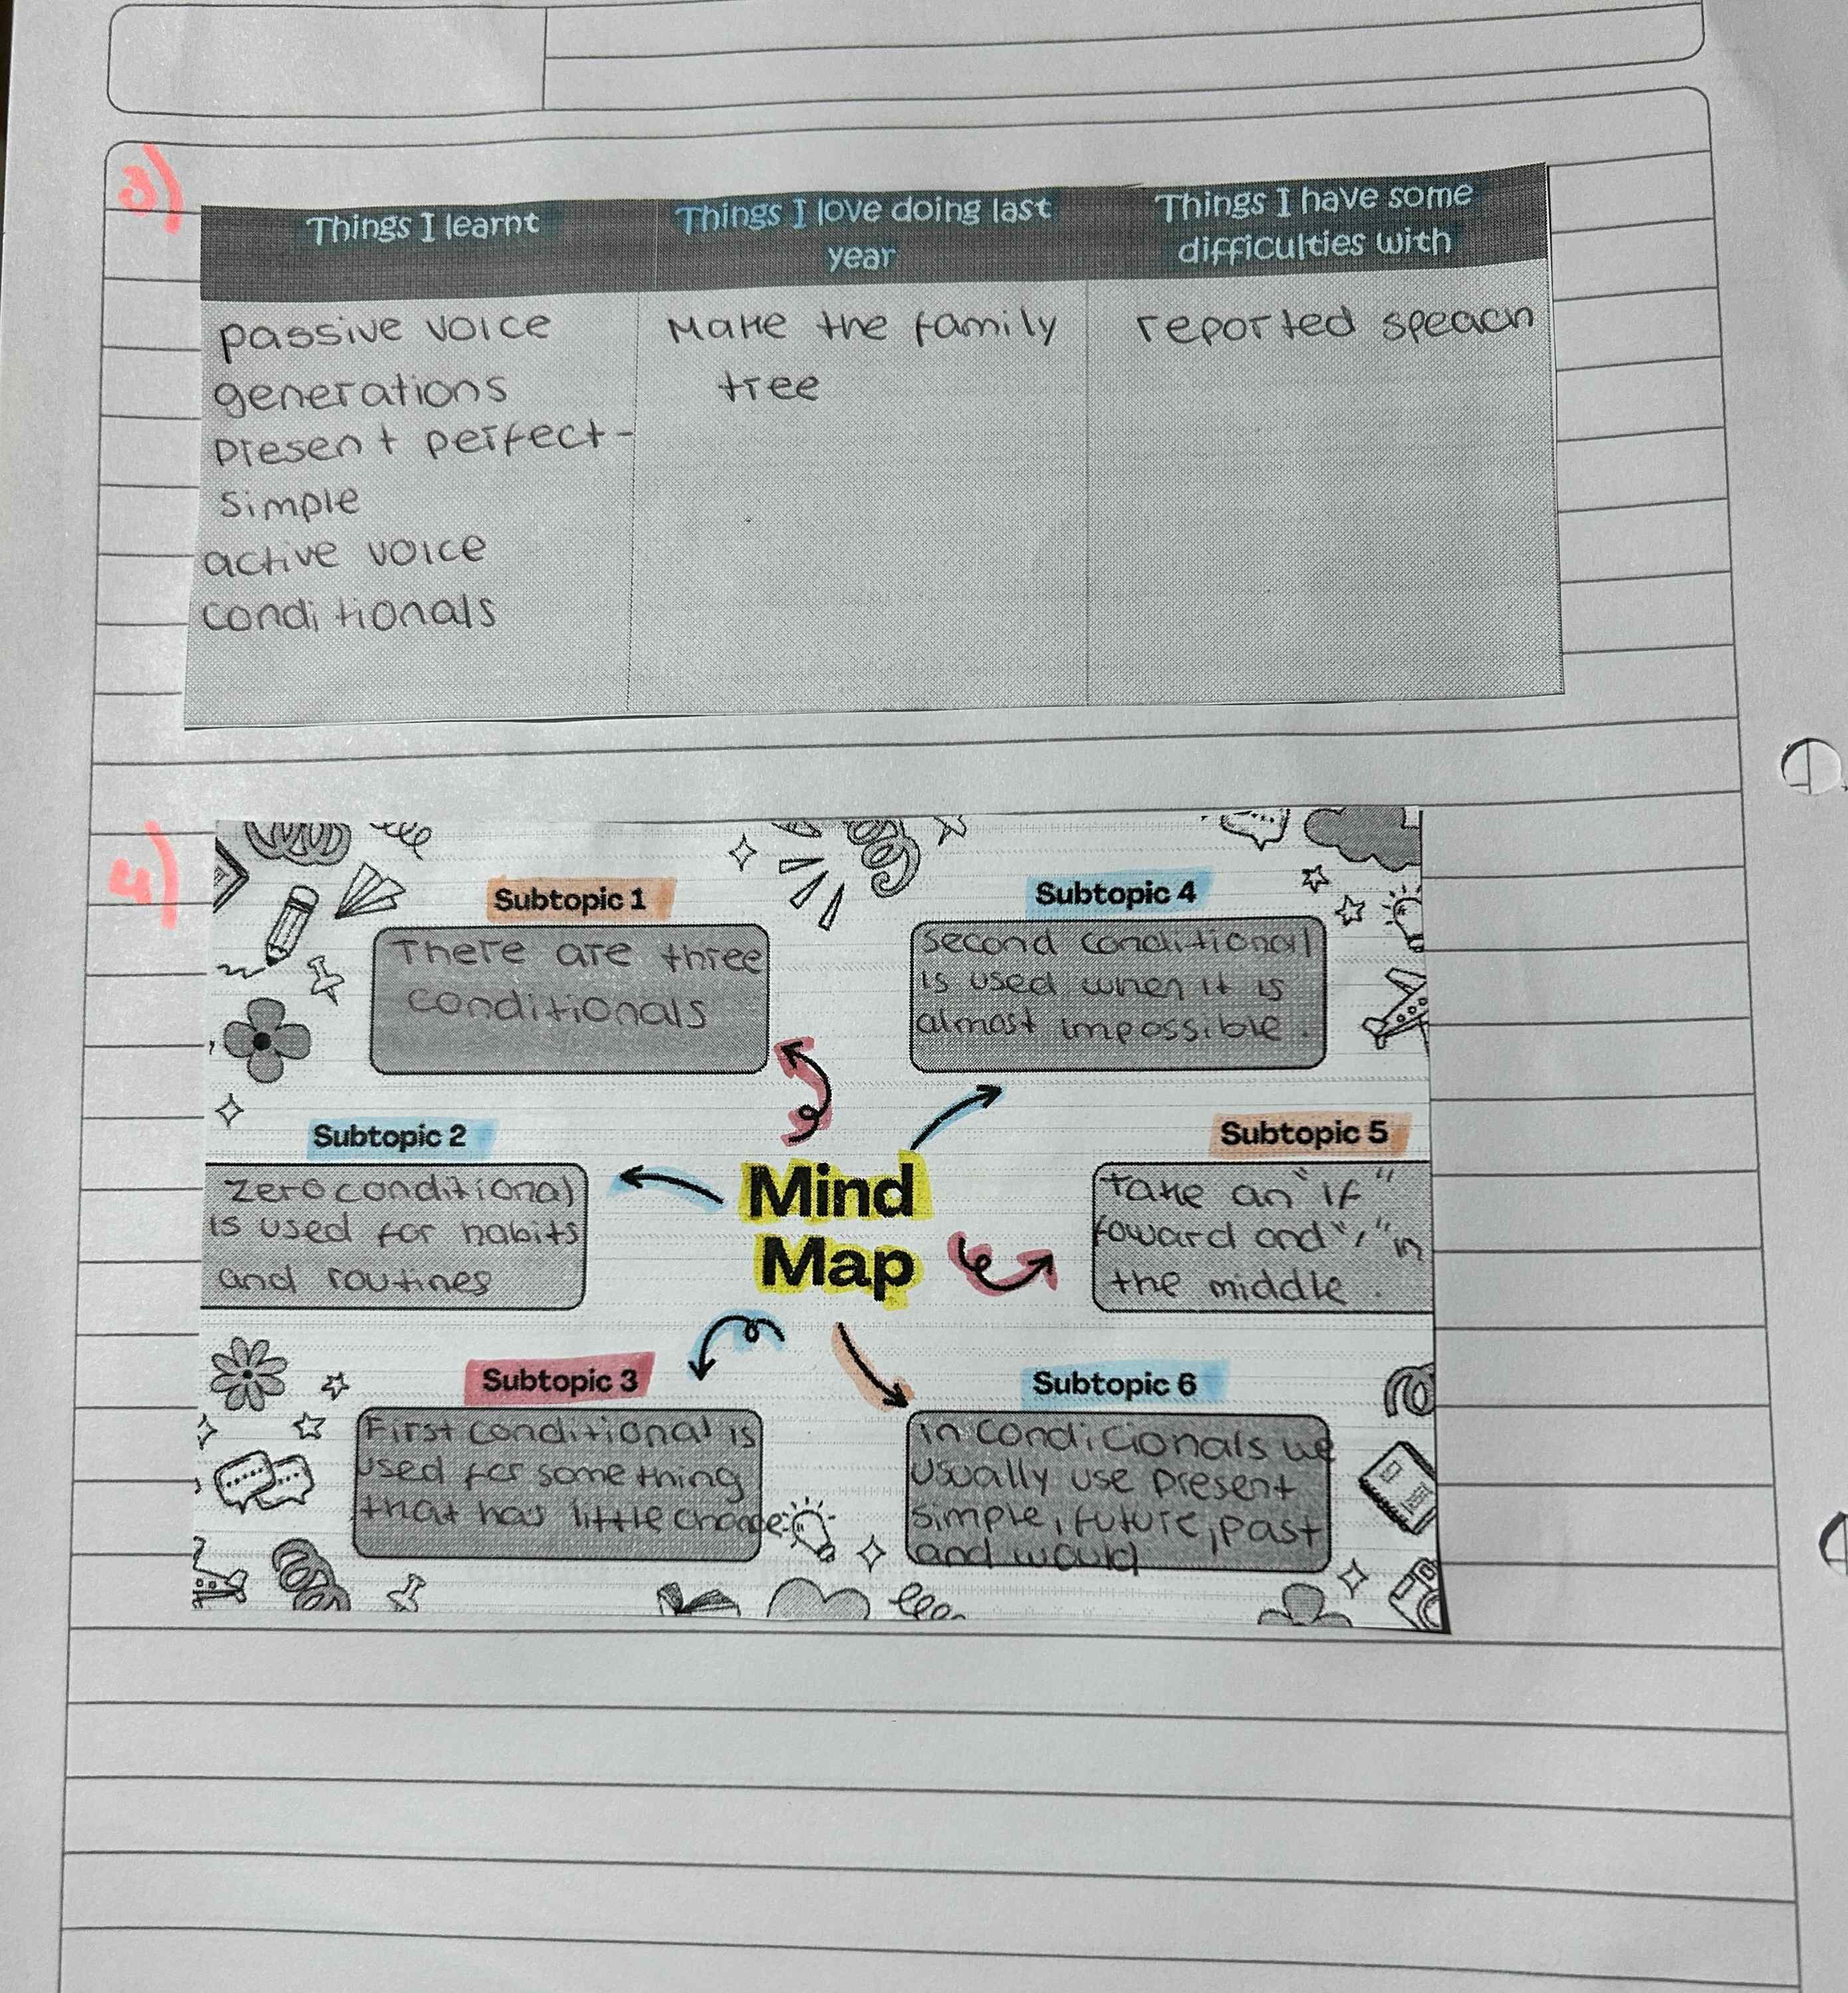 3)
Things I learnt
Things I love doing last
year
Things I have some
difficulties with
passive voice
generations
present perfect-
simple
active voice
conditionals
Make the family
tree
reported speach
4)
Subtopic 1
There are three
conditionals
Subtopic 4
second conditional
is used when it is
almost impossible.
Subtopic 2
zero conditional
is used for habits
and routines
Mind
Map
Subtopic 5
take an "if"
foward and "," in
the middle.
Subtopic 3
First conditional is
used for something
that has little change.
Subtopic 6
in condicionals we
usually use present
simple, future, past
and would